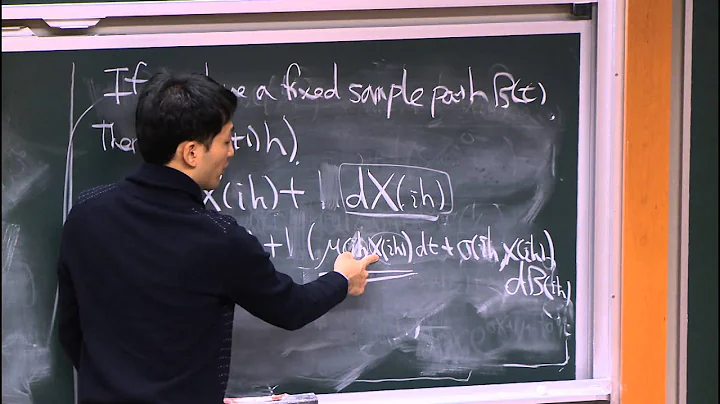 If a fixed sample path B(t),
Then +1)h)
X(ih) + 1 dX(ih)
+ 1 (μ(ih, X(ih))dt + σ(ih, X(ih))
dB(ih)